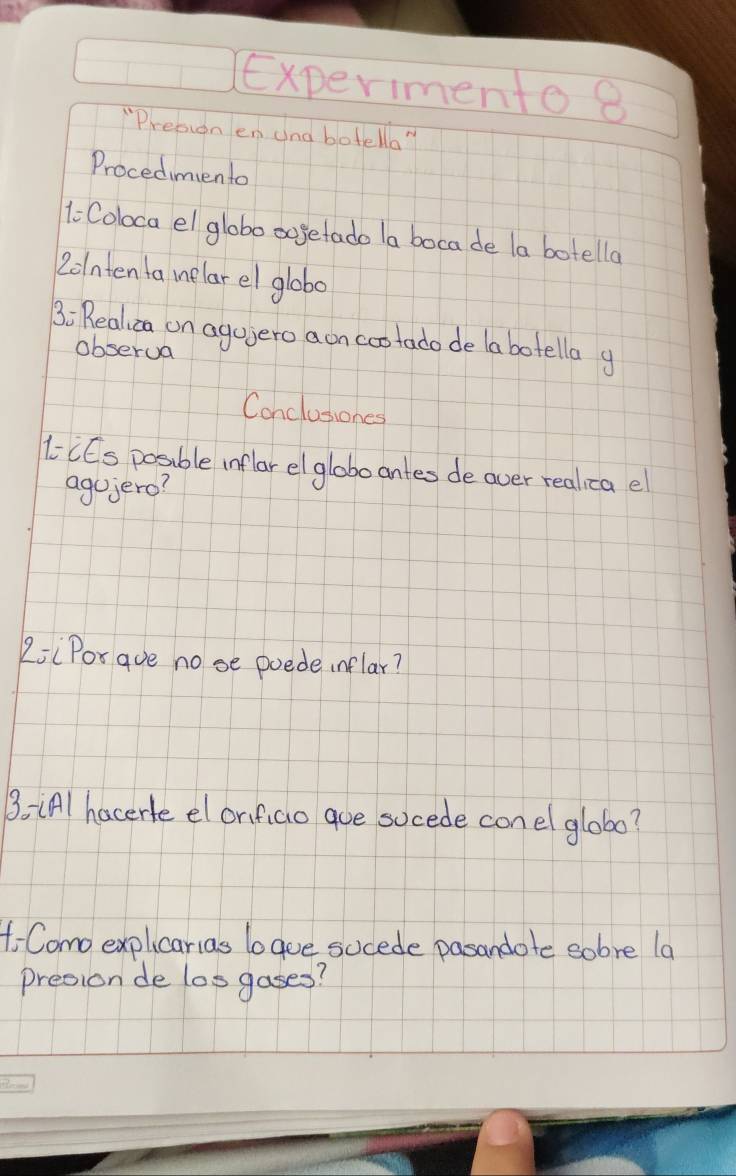 Experimento 8
"Presion en una botella"
Procedimiento
1.- Coloca el globo sojetado la boca de la botella
2.- Intenta inflar el globo
3.- Realiza un agujero aun costado de la botella y
observa
Conclusiones
1.- ¿Es posible inflar el globo antes de aver realiza el
agujero?
2.- ¿Por que no se puede inflar?
3.- ¿Al hacerte el orificio que sucede con el globo?
4.- Como explicarias lo que sucede pasandote sobre la
presion de los gases?